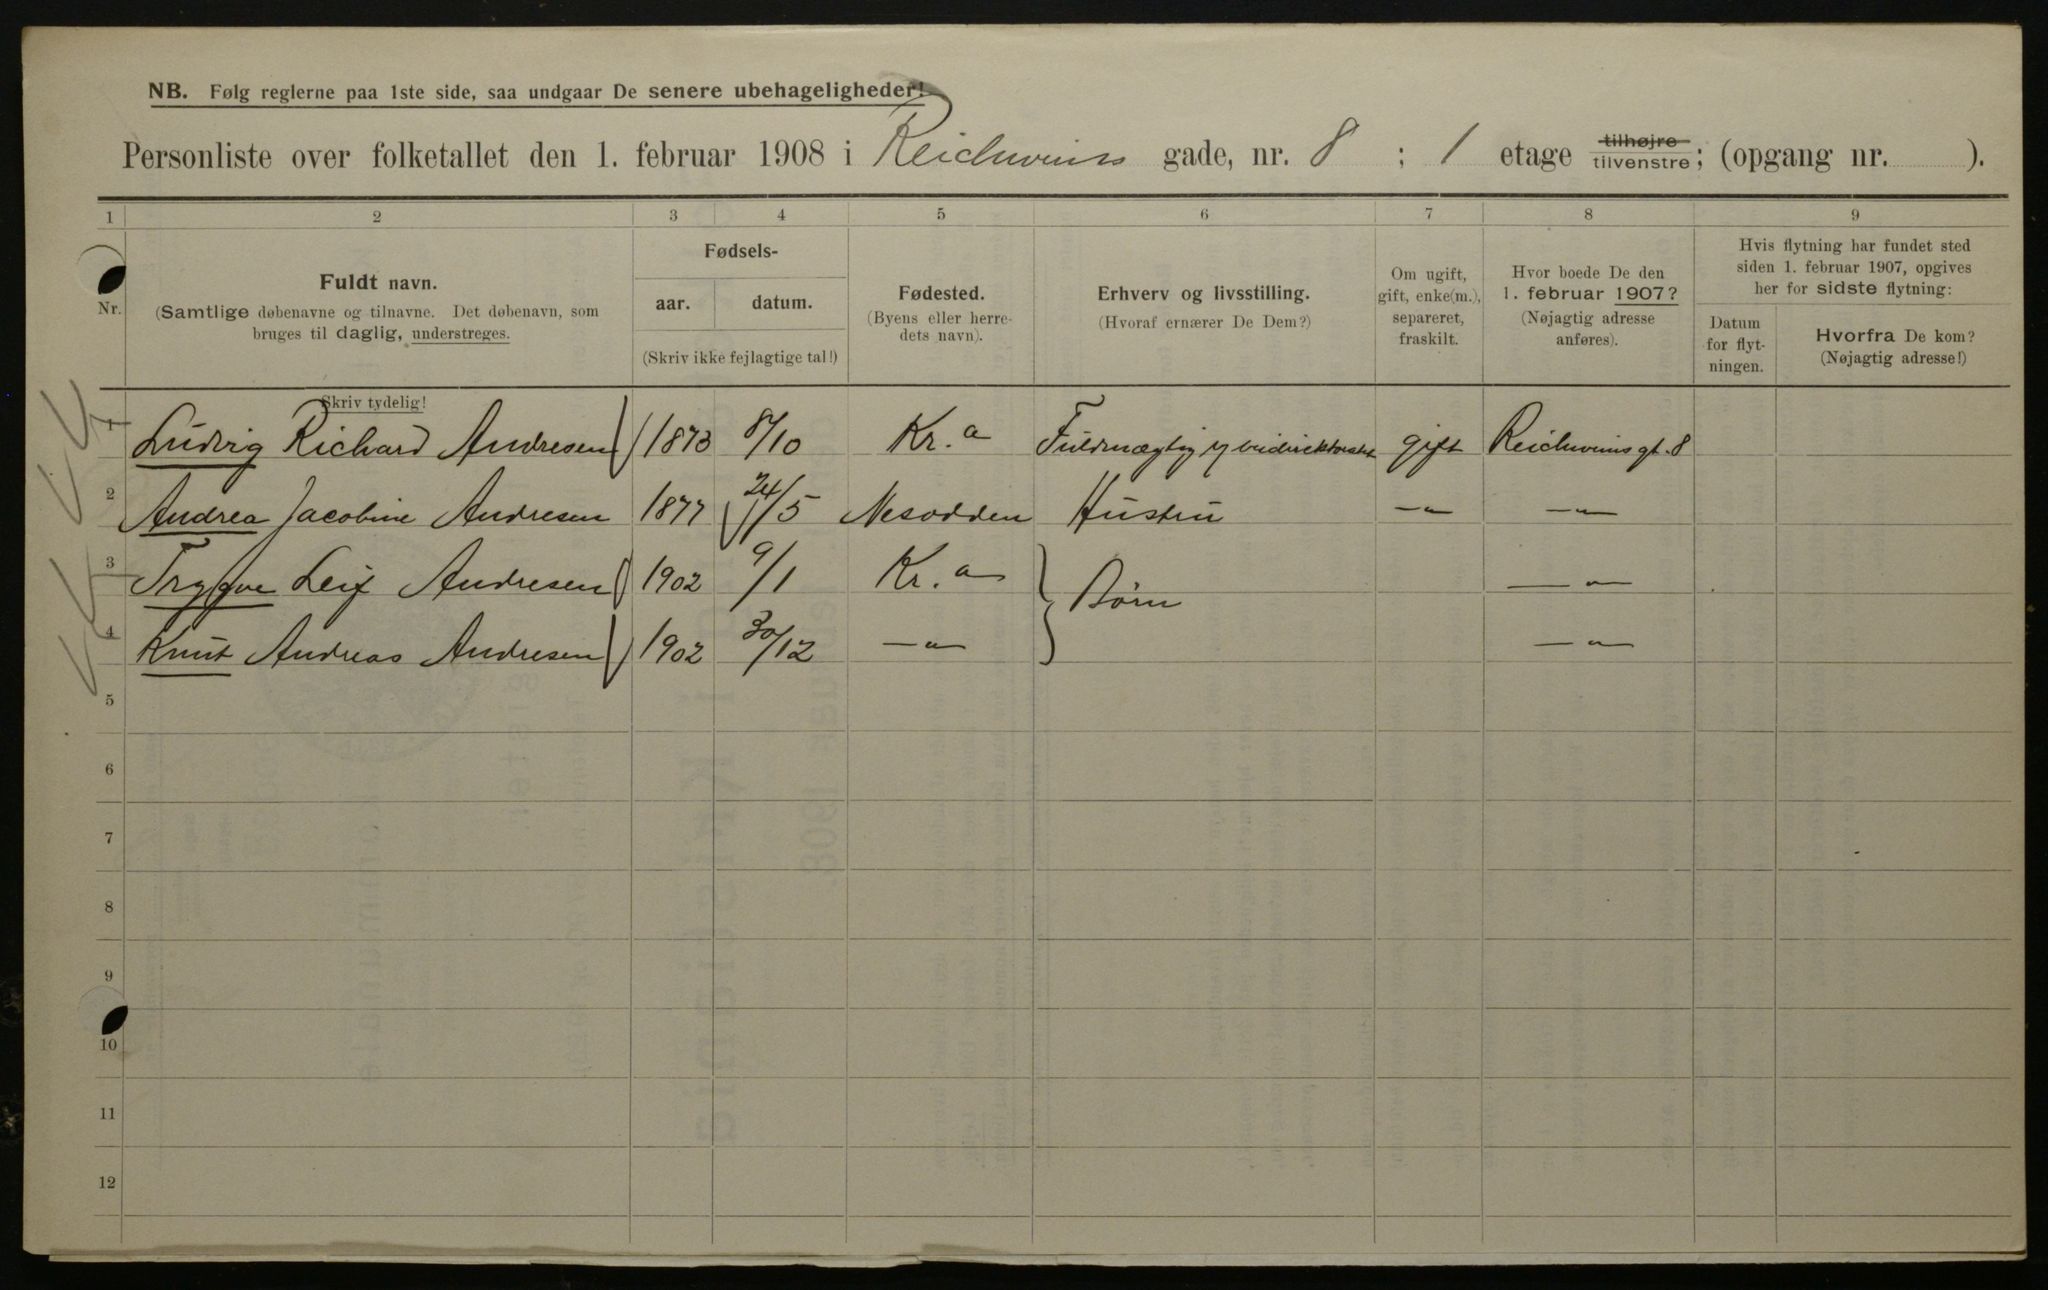 NB. Følg reglerne paa 1ste side, saa undgaar De senere ubehageligheder!
Personliste over folketallet den 1. februar 1908 i Reichweins gade, nr. 8 ; 1 etage tilhøjre tilvenstre; (opgang nr. ).
1 2 3 4 5 6 7 8 9
Nr.
Fuldt navn.
(Samtlige døbenavne og tilnavne. Det døbenavn, som
bruges til daglig, understreges.
Skriv tydelig!
Fødsels-
aar. datum.
(Skriv ikke fejlagtige tal!)
Fødested.
(Byens eller herre-
dets navn).
Erhverv og livsstilling.
(Hvoraf ernærer De Dem?)
Om ugift,
gift, enke(m.),
separeret,
fraskilt.
Hvor boede De den
1. februar 1907?
(Nøjagtig adresse
anføres).
Hvis flytning har fundet sted
siden 1. februar 1907, opgives
her for sidste flytning:
Datum
for flyt-
ningen.
Hvorfra De kom?
(Nøjagtig adresse!)
1 Ludvig Richard Andresen 1873 8/10 Kr.a Fuldmægtig gift Reichweinsgt. 8
2 Andrea Jacobine Andresen 1877 24/5 Nesodden Hustru —"— —"—
3 Trygve Leif Andresen 1902 9/1 Kr.a } Børn —"—
4 Knut Andreas Andresen 1902 30/12 —"— —"—
5
6
7
8
9
10
11
12